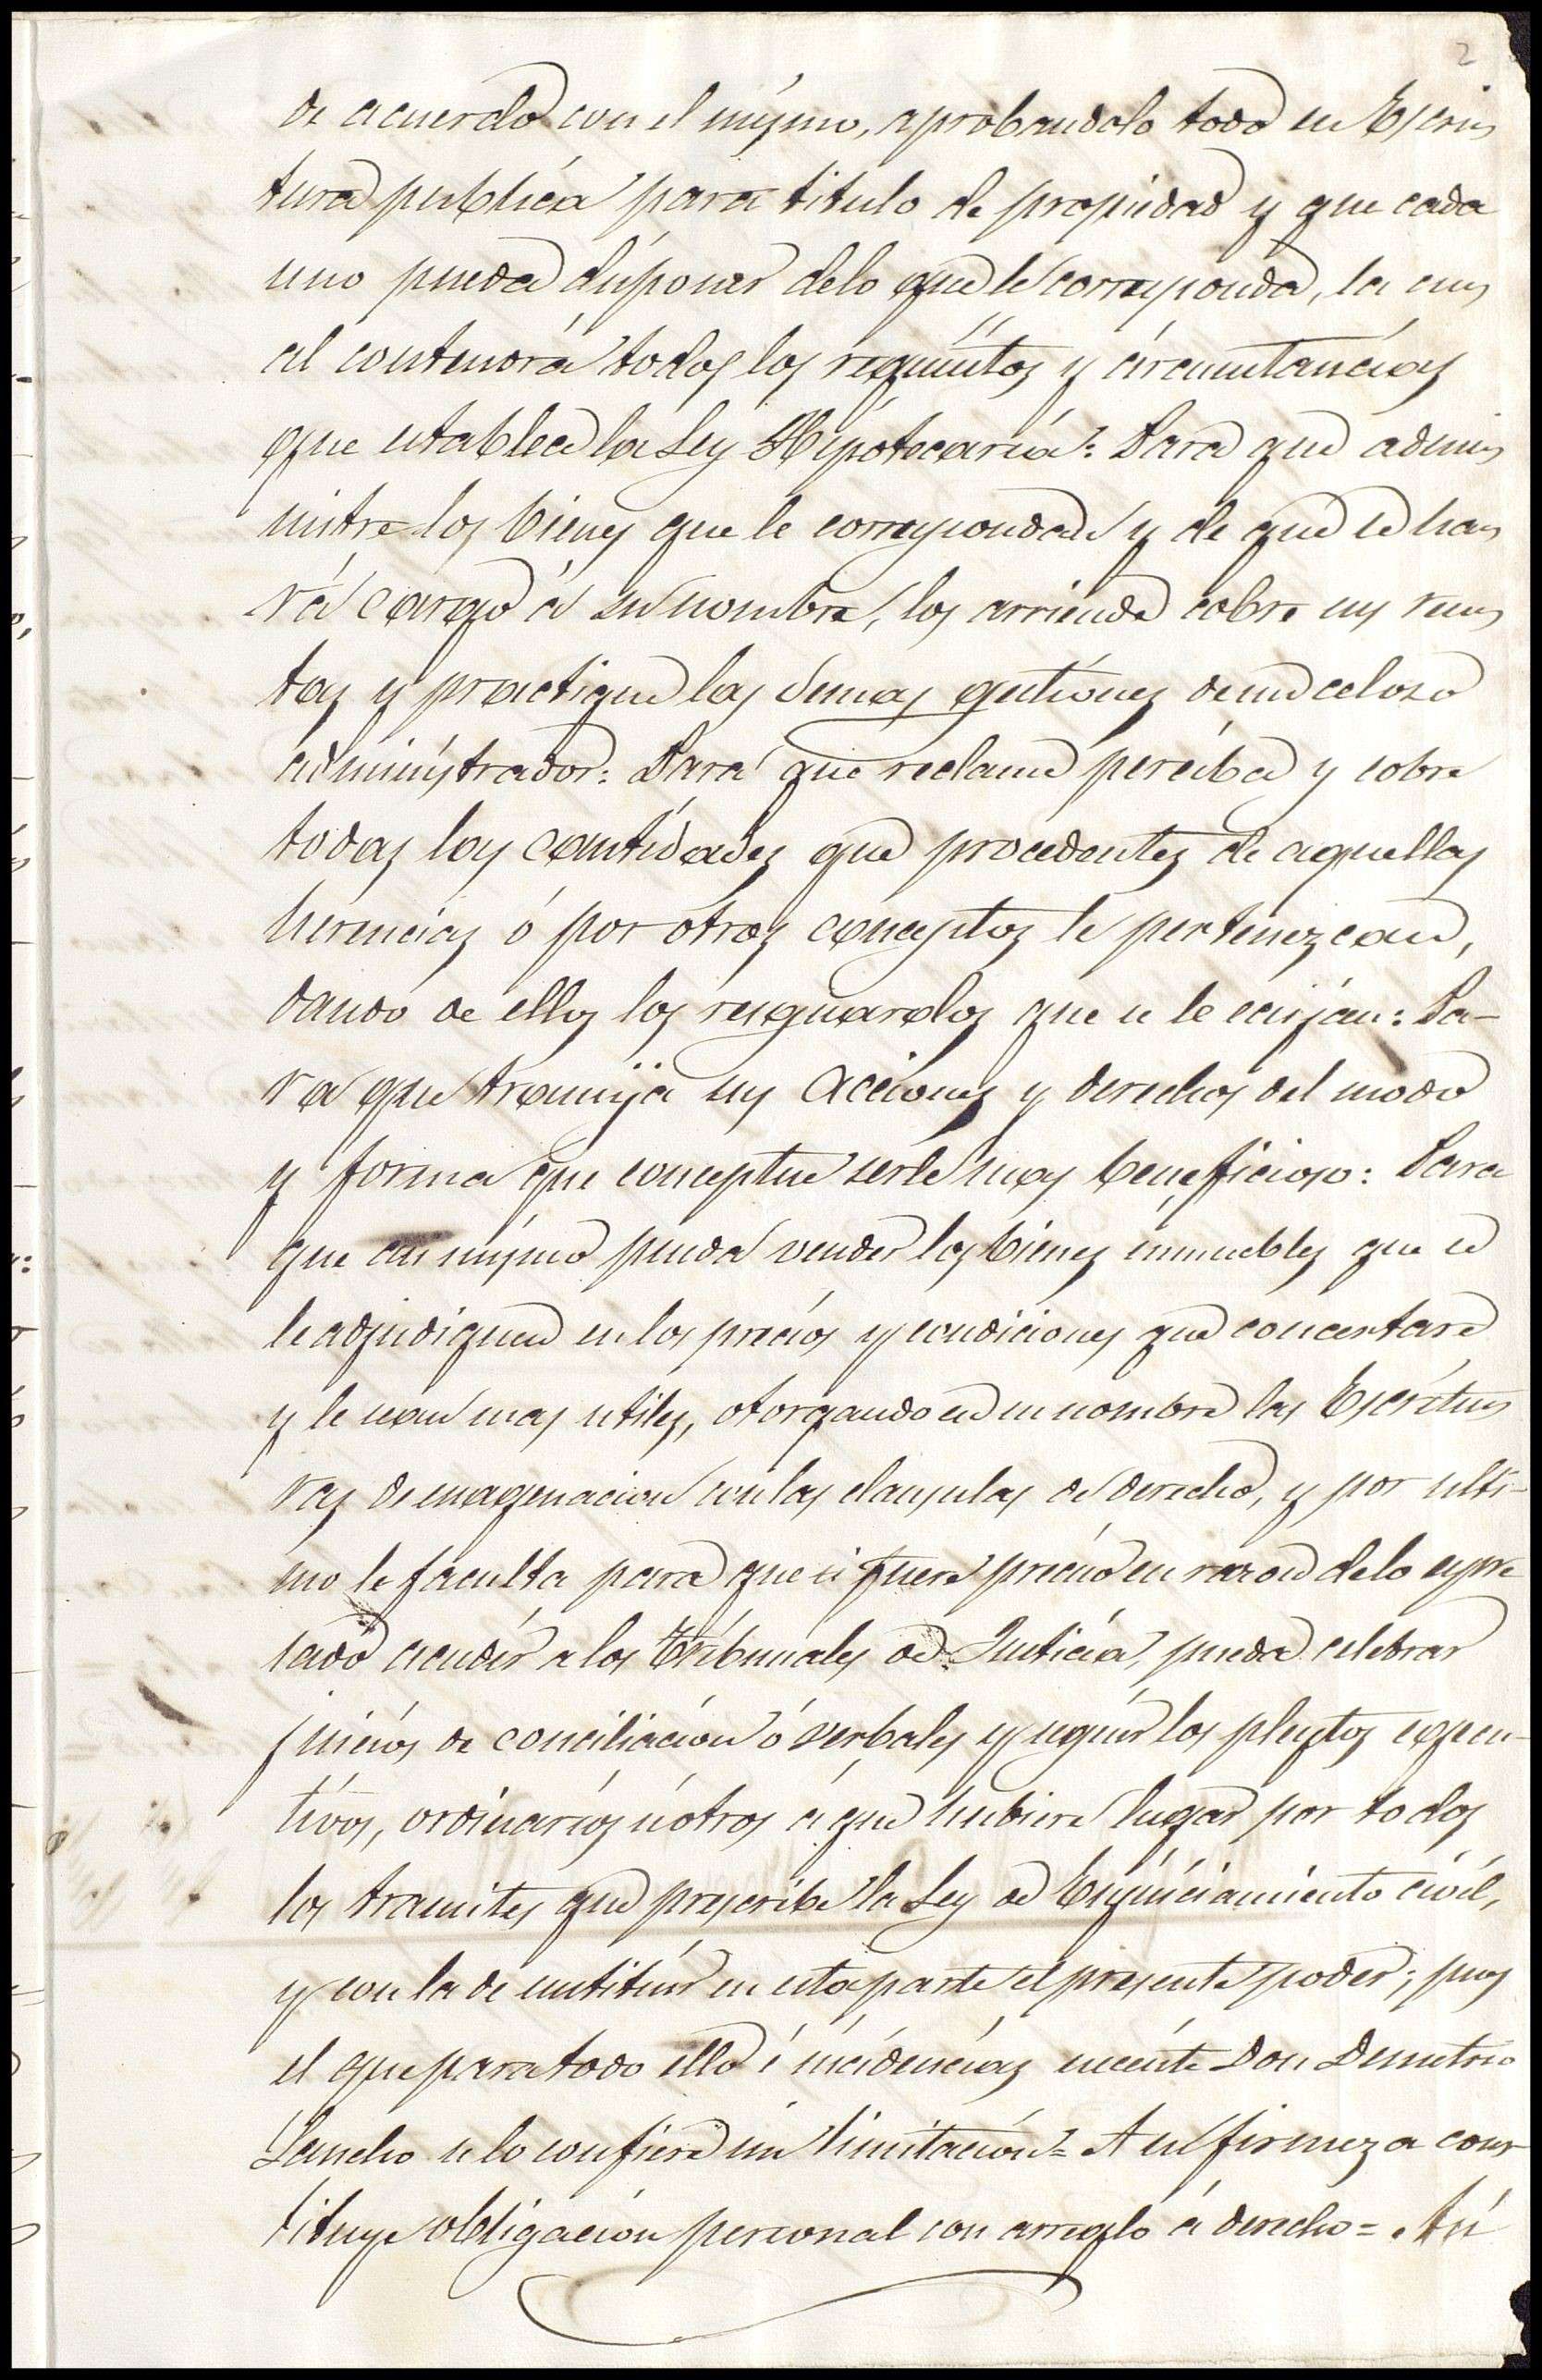 2
de acuerdo con el mismo, aprobandolo todo en Escri
tura publica para titulo de propiedad y que cada
uno pueda disponer delo que le corresponda, la cu
al contendrá todos los requisitos y circunstancias
que establece la Ley Hipotecaria: Para que admi
nistre los bienes que le correspondan y de que se ha
rá cargo á su nombre, los arriende cobre sus ren
tas y practique las demas gestiones de un celoso
administrador: Para que reclame perciba y cobre
todas las cantidades que procedentes de aquellas
herencias ó por otros conceptos le pertenezcan,
dando de ellos los resguardos que se le exijan: Pa-
ra que transija sus acciones y derechos del modo
y forma que conceptue serle mas beneficioso: Para
que asi mismo pueda vender los bienes inmuebles que se
le adjudiquen en los precios y condiciones que concertare
y le sean mas utiles, otorgando en su nombre las Escritu
ras de enagenacion con las clausulas de derecho, y por ulti-
mo le faculta para que si fuere preciso en razon delo expre
sado acudir a los Tribunales de Justicia, pueda celebrar
juicios de conciliacion ó verbales y seguir los pleytos egecu-
tivos, ordinarios ú otros á que hubiere lugar por todos
los tramites que prescribe la Ley de Enjuiciamiento civil,
y con la de sustituir en esta parte el presente poder; pues
el que para todo ello é incidencias necesite Don Demetrio
Sancho se lo confiere sin limitacion = A su firmeza cons
tituye obligacion personal con arreglo á derecho = Asi